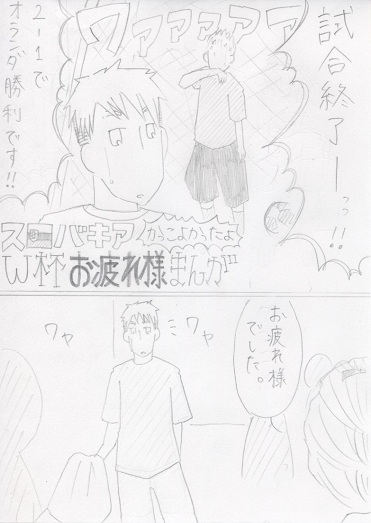 試合終了ーっっ!!
ワァァァァァ
2-1で
オランダ勝利です!!
スロバキアかっこよかったよ
W杯お疲れ様まんが
お疲れ様
でした。
ワヤ
ワヤ